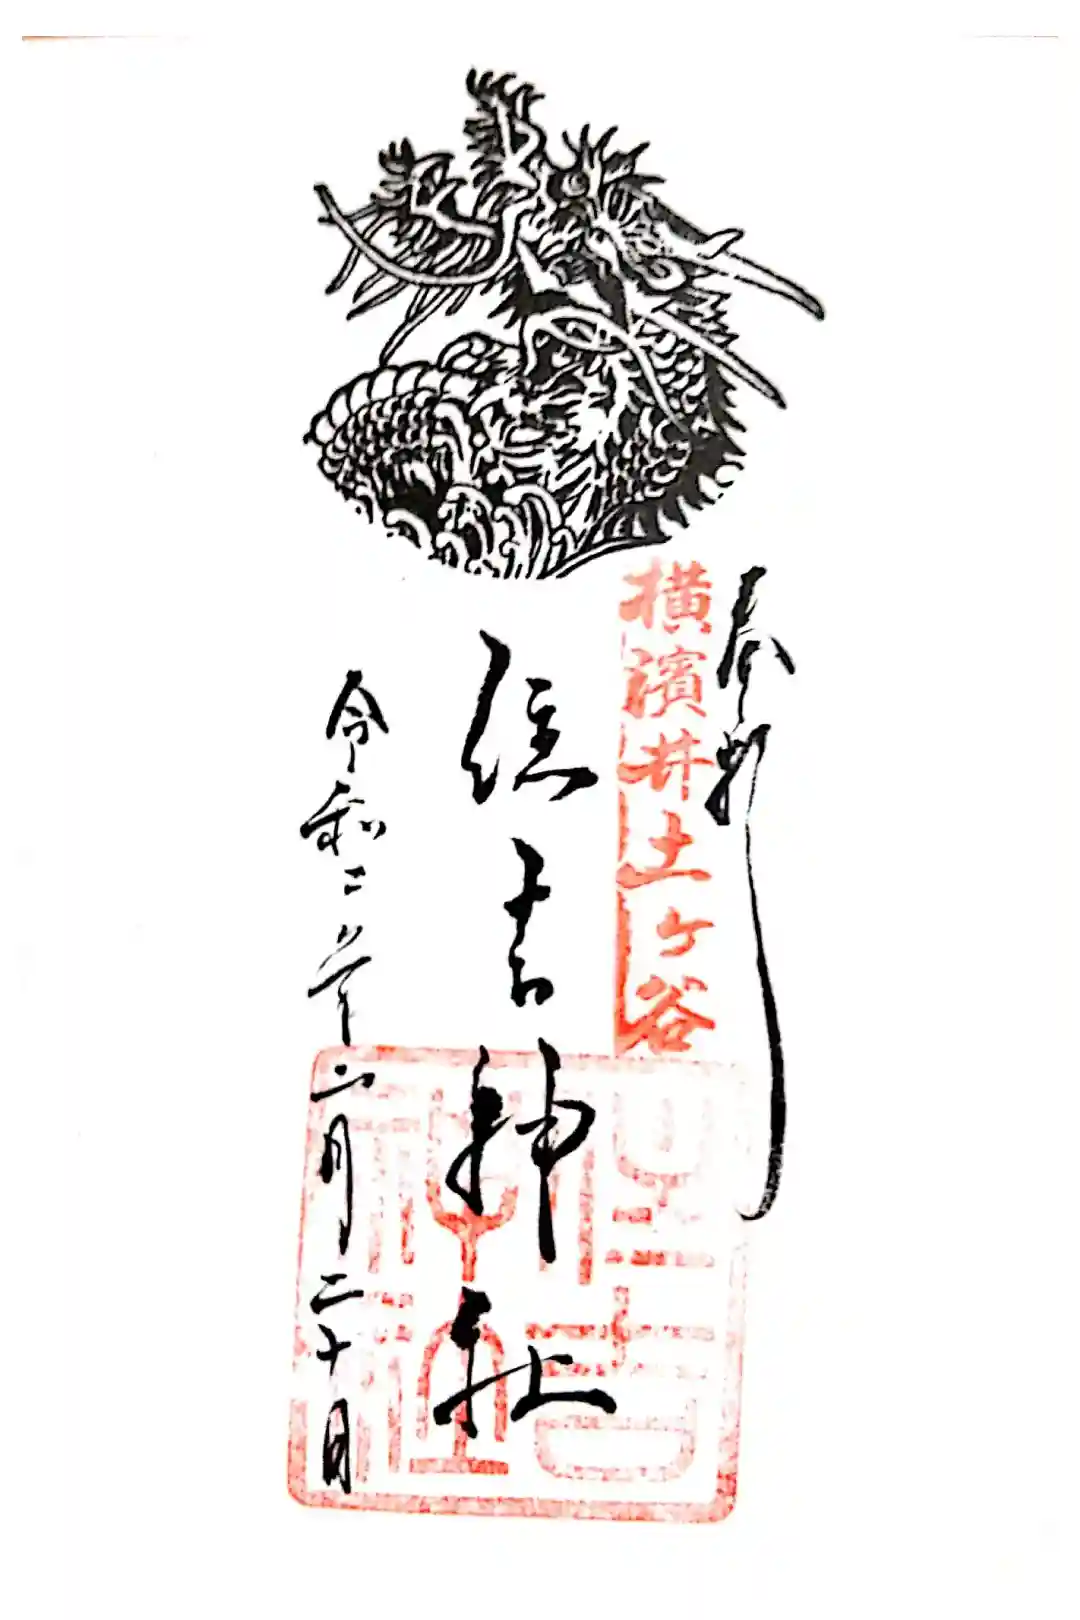 奉拝
横濱井土ヶ谷
住吉神社
令和二年六月二十日